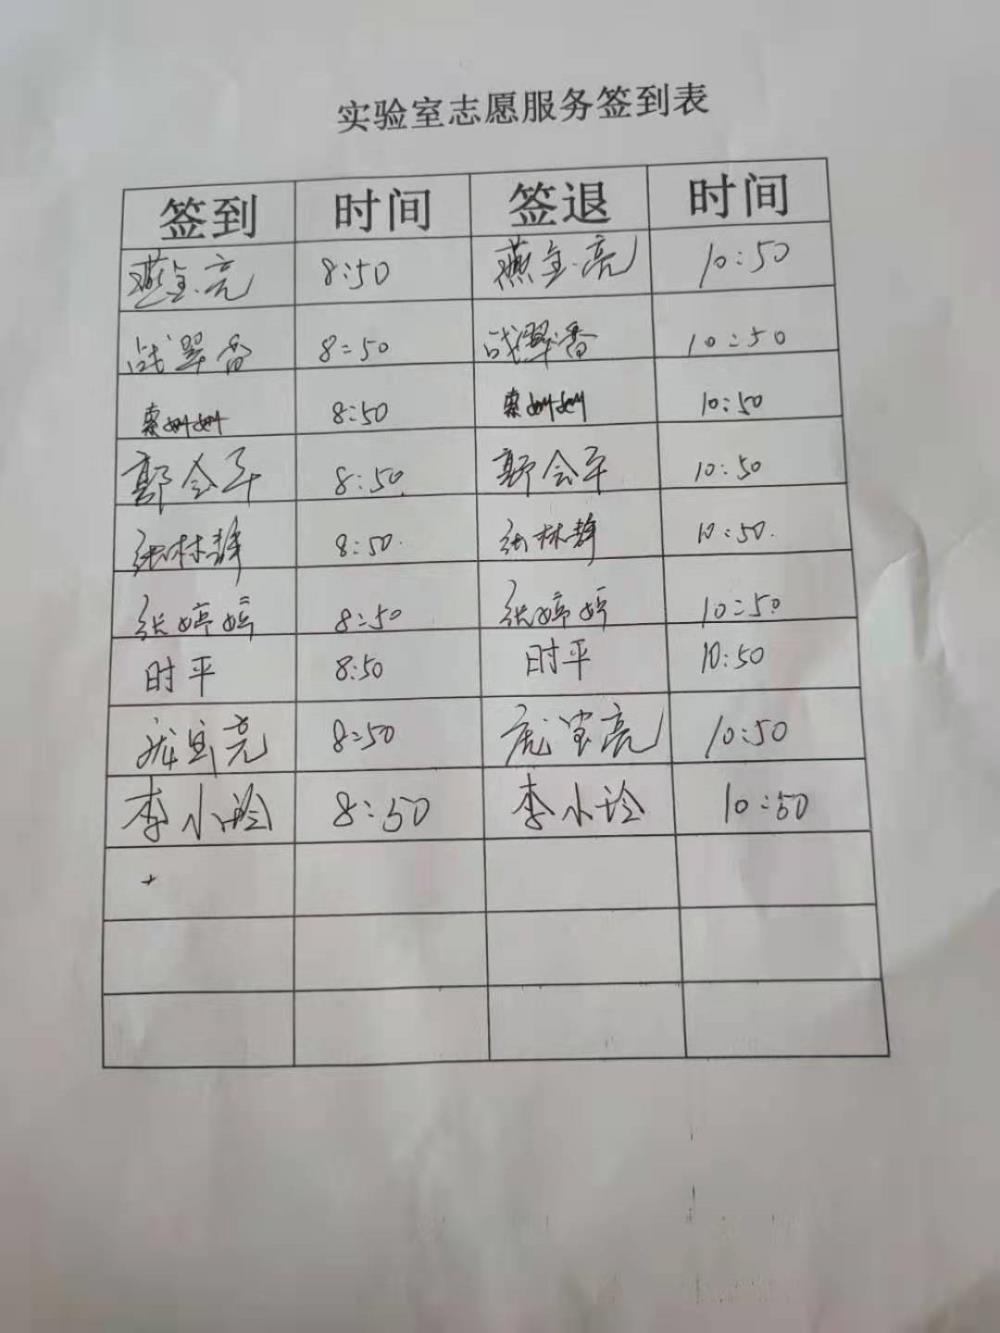 实验室志愿服务签到表
签到 时间 签退 时间
燕金亮 8:50 燕金亮 10:50
战翠香 8:50 战翠香 10:50
索姗姗 8:50 索姗姗 10:50
郭会平 8:50 郭会平 10:50
张林静 8:50 张林静 10:50
张婷婷 8:50 张婷婷 10:50
时平 8:50 时平 10:50
8:50 10:50
李小玲 8:50 李小玲 10:50